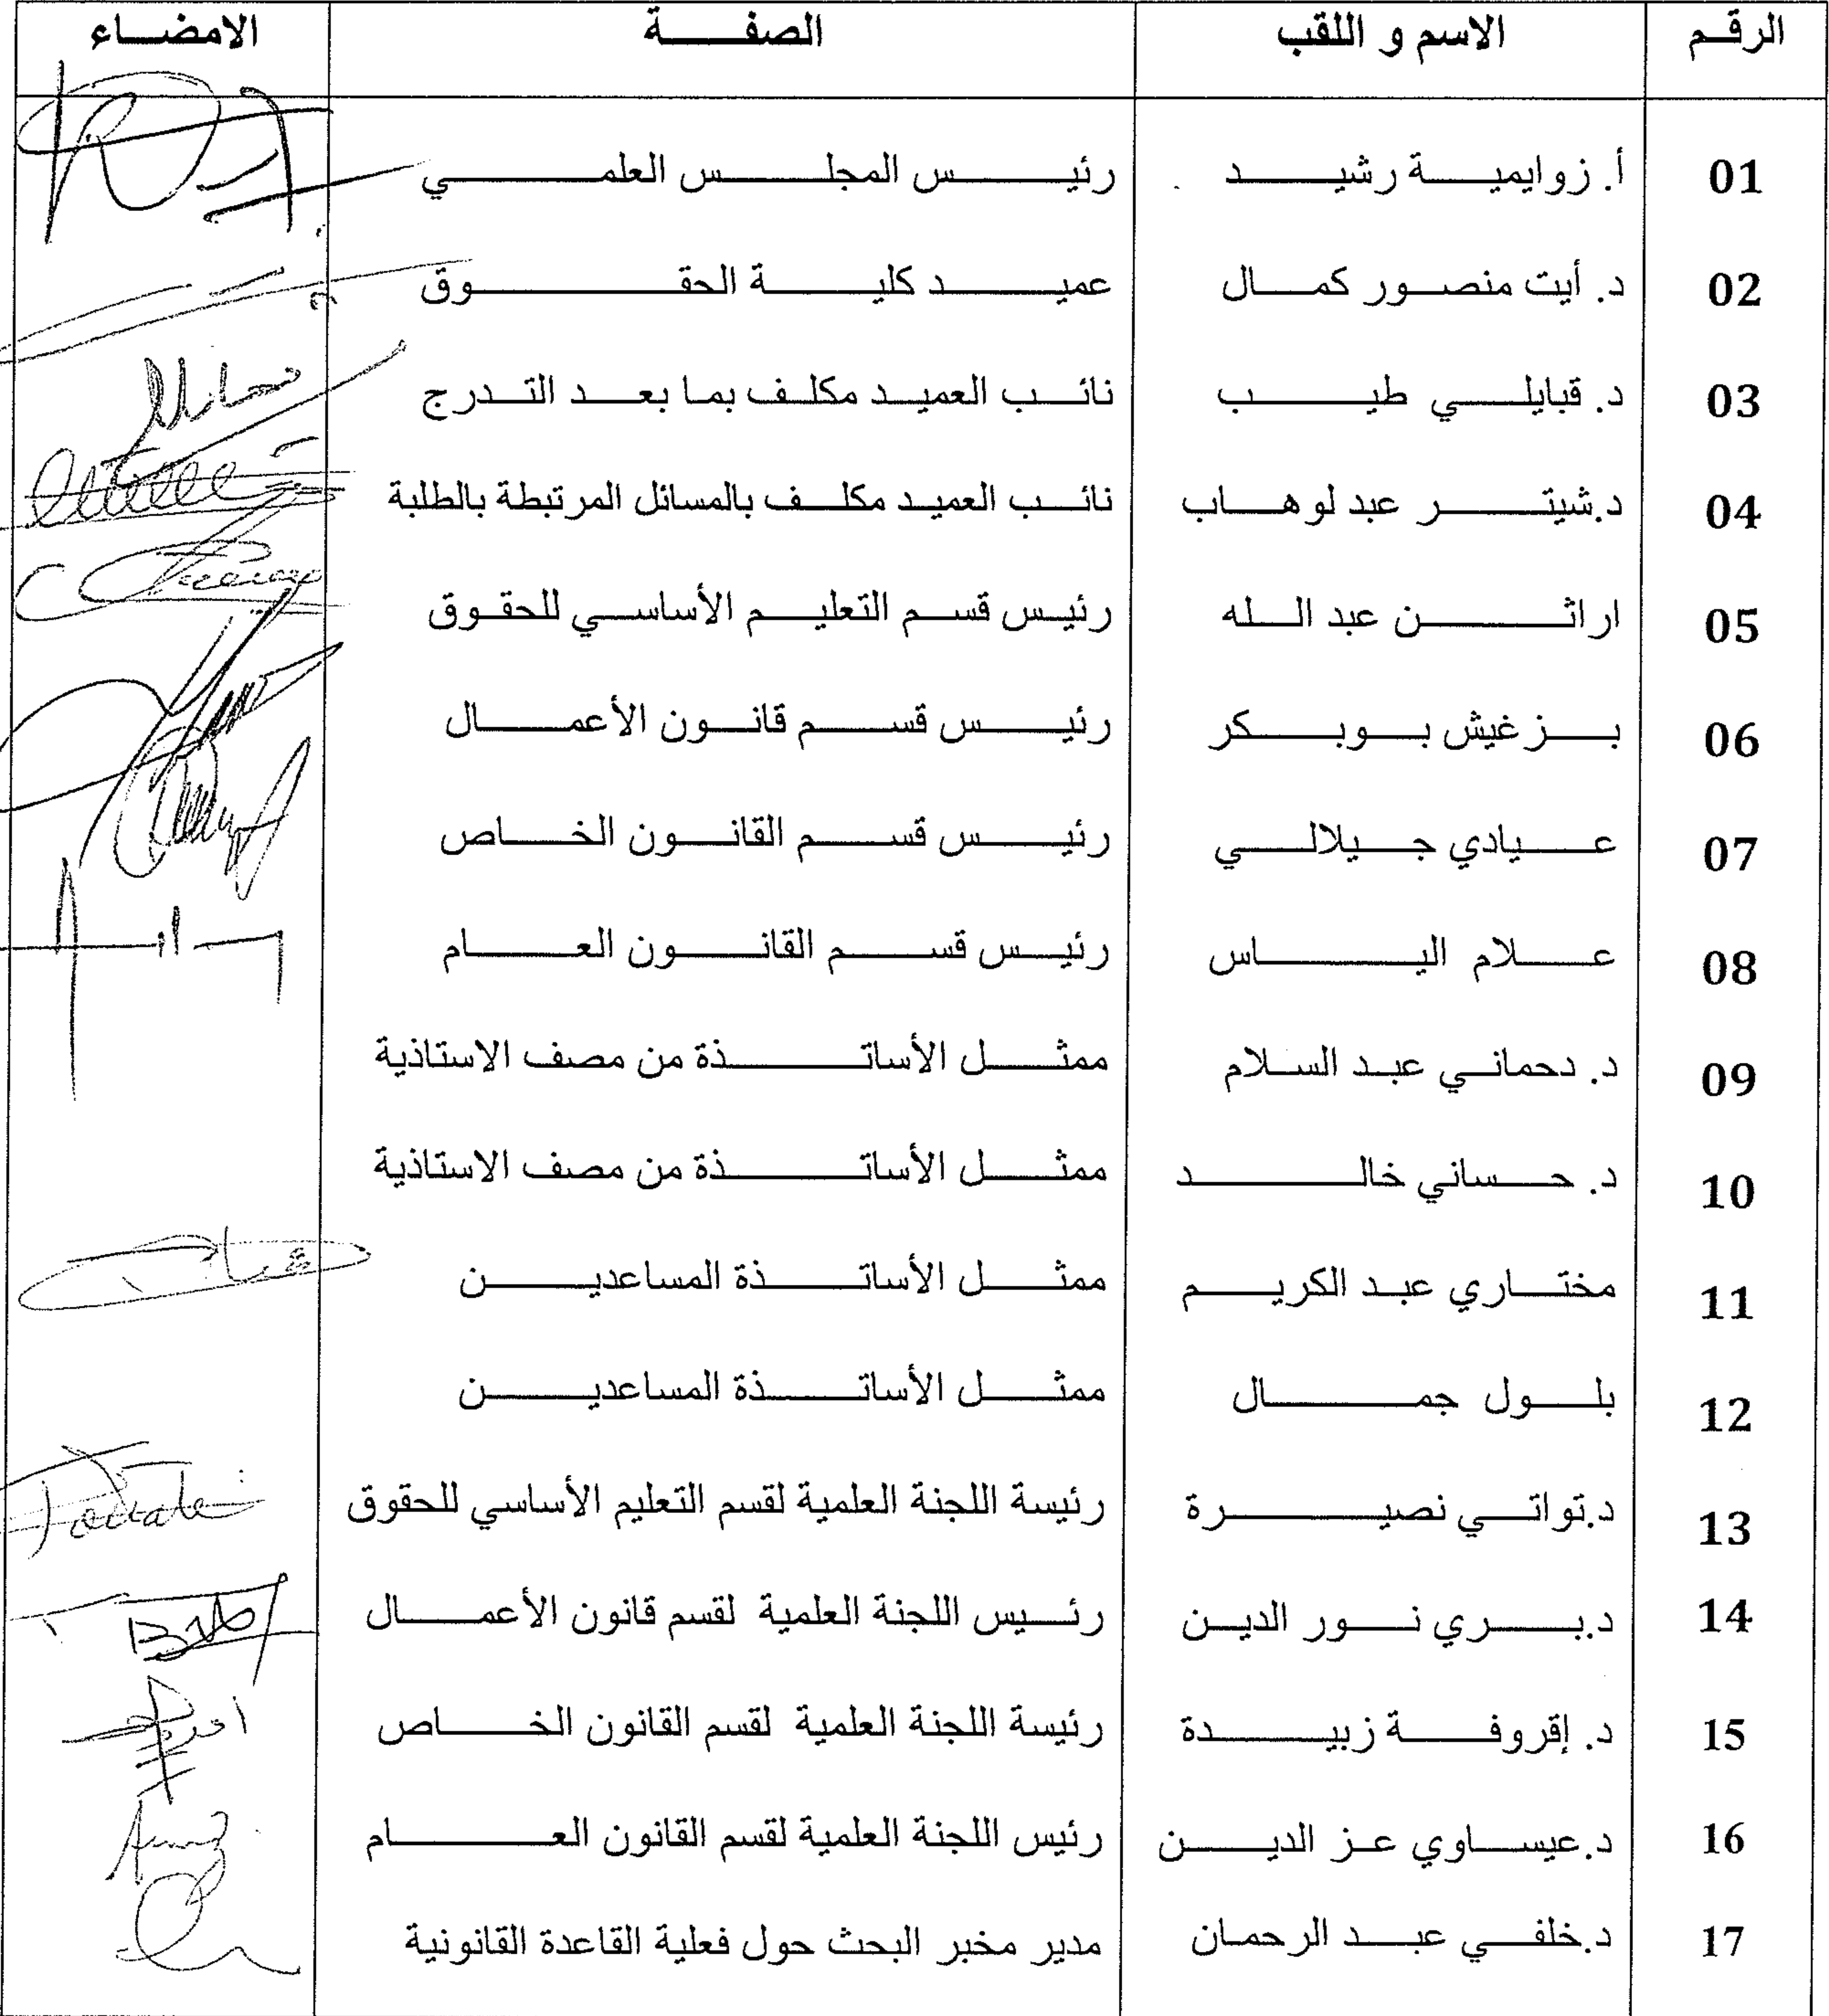 الرقم الاسم و اللقب الصفة الامضاء
01 أ. زوايمية رشيد رئيس المجلس العلمي
02 د. أيت منصور كمال عميد كلية الحقوق
03 د. قبايلي طيب نائب العميد مكلف بما بعد التدرج
04 د.شيتر عبد لوهاب نائب العميد مكلف بالمسائل المرتبطة بالطلبة
05 اراثن عبد الله رئيس قسم التعليم الأساسي للحقوق
06 بزغيش بوبكر رئيس قسم قانون الأعمال
07 عيادي جيلالي رئيس قسم القانون الخاص
08 علام الياس رئيس قسم القانون العام
09 د. دحماني عبد السلام ممثل الأساتذة من مصف الاستاذية
10 د. حساني خالد ممثل الأساتذة من مصف الاستاذية
11 مختاري عبد الكريم ممثل الأساتذة المساعدين
12 بلول جمال ممثل الأساتذة المساعدين
13 د.تواتي نصيرة رئيسة اللجنة العلمية لقسم التعليم الأساسي للحقوق
14 د.بري نور الدين رئيس اللجنة العلمية لقسم قانون الأعمال
15 د. إقروفة زبيدة رئيسة اللجنة العلمية لقسم القانون الخاص
16 د.عيساوي عز الدين رئيس اللجنة العلمية لقسم القانون العام
17 د.خلفي عبد الرحمان مدير مخبر البحث حول فعلية القاعدة القانونية